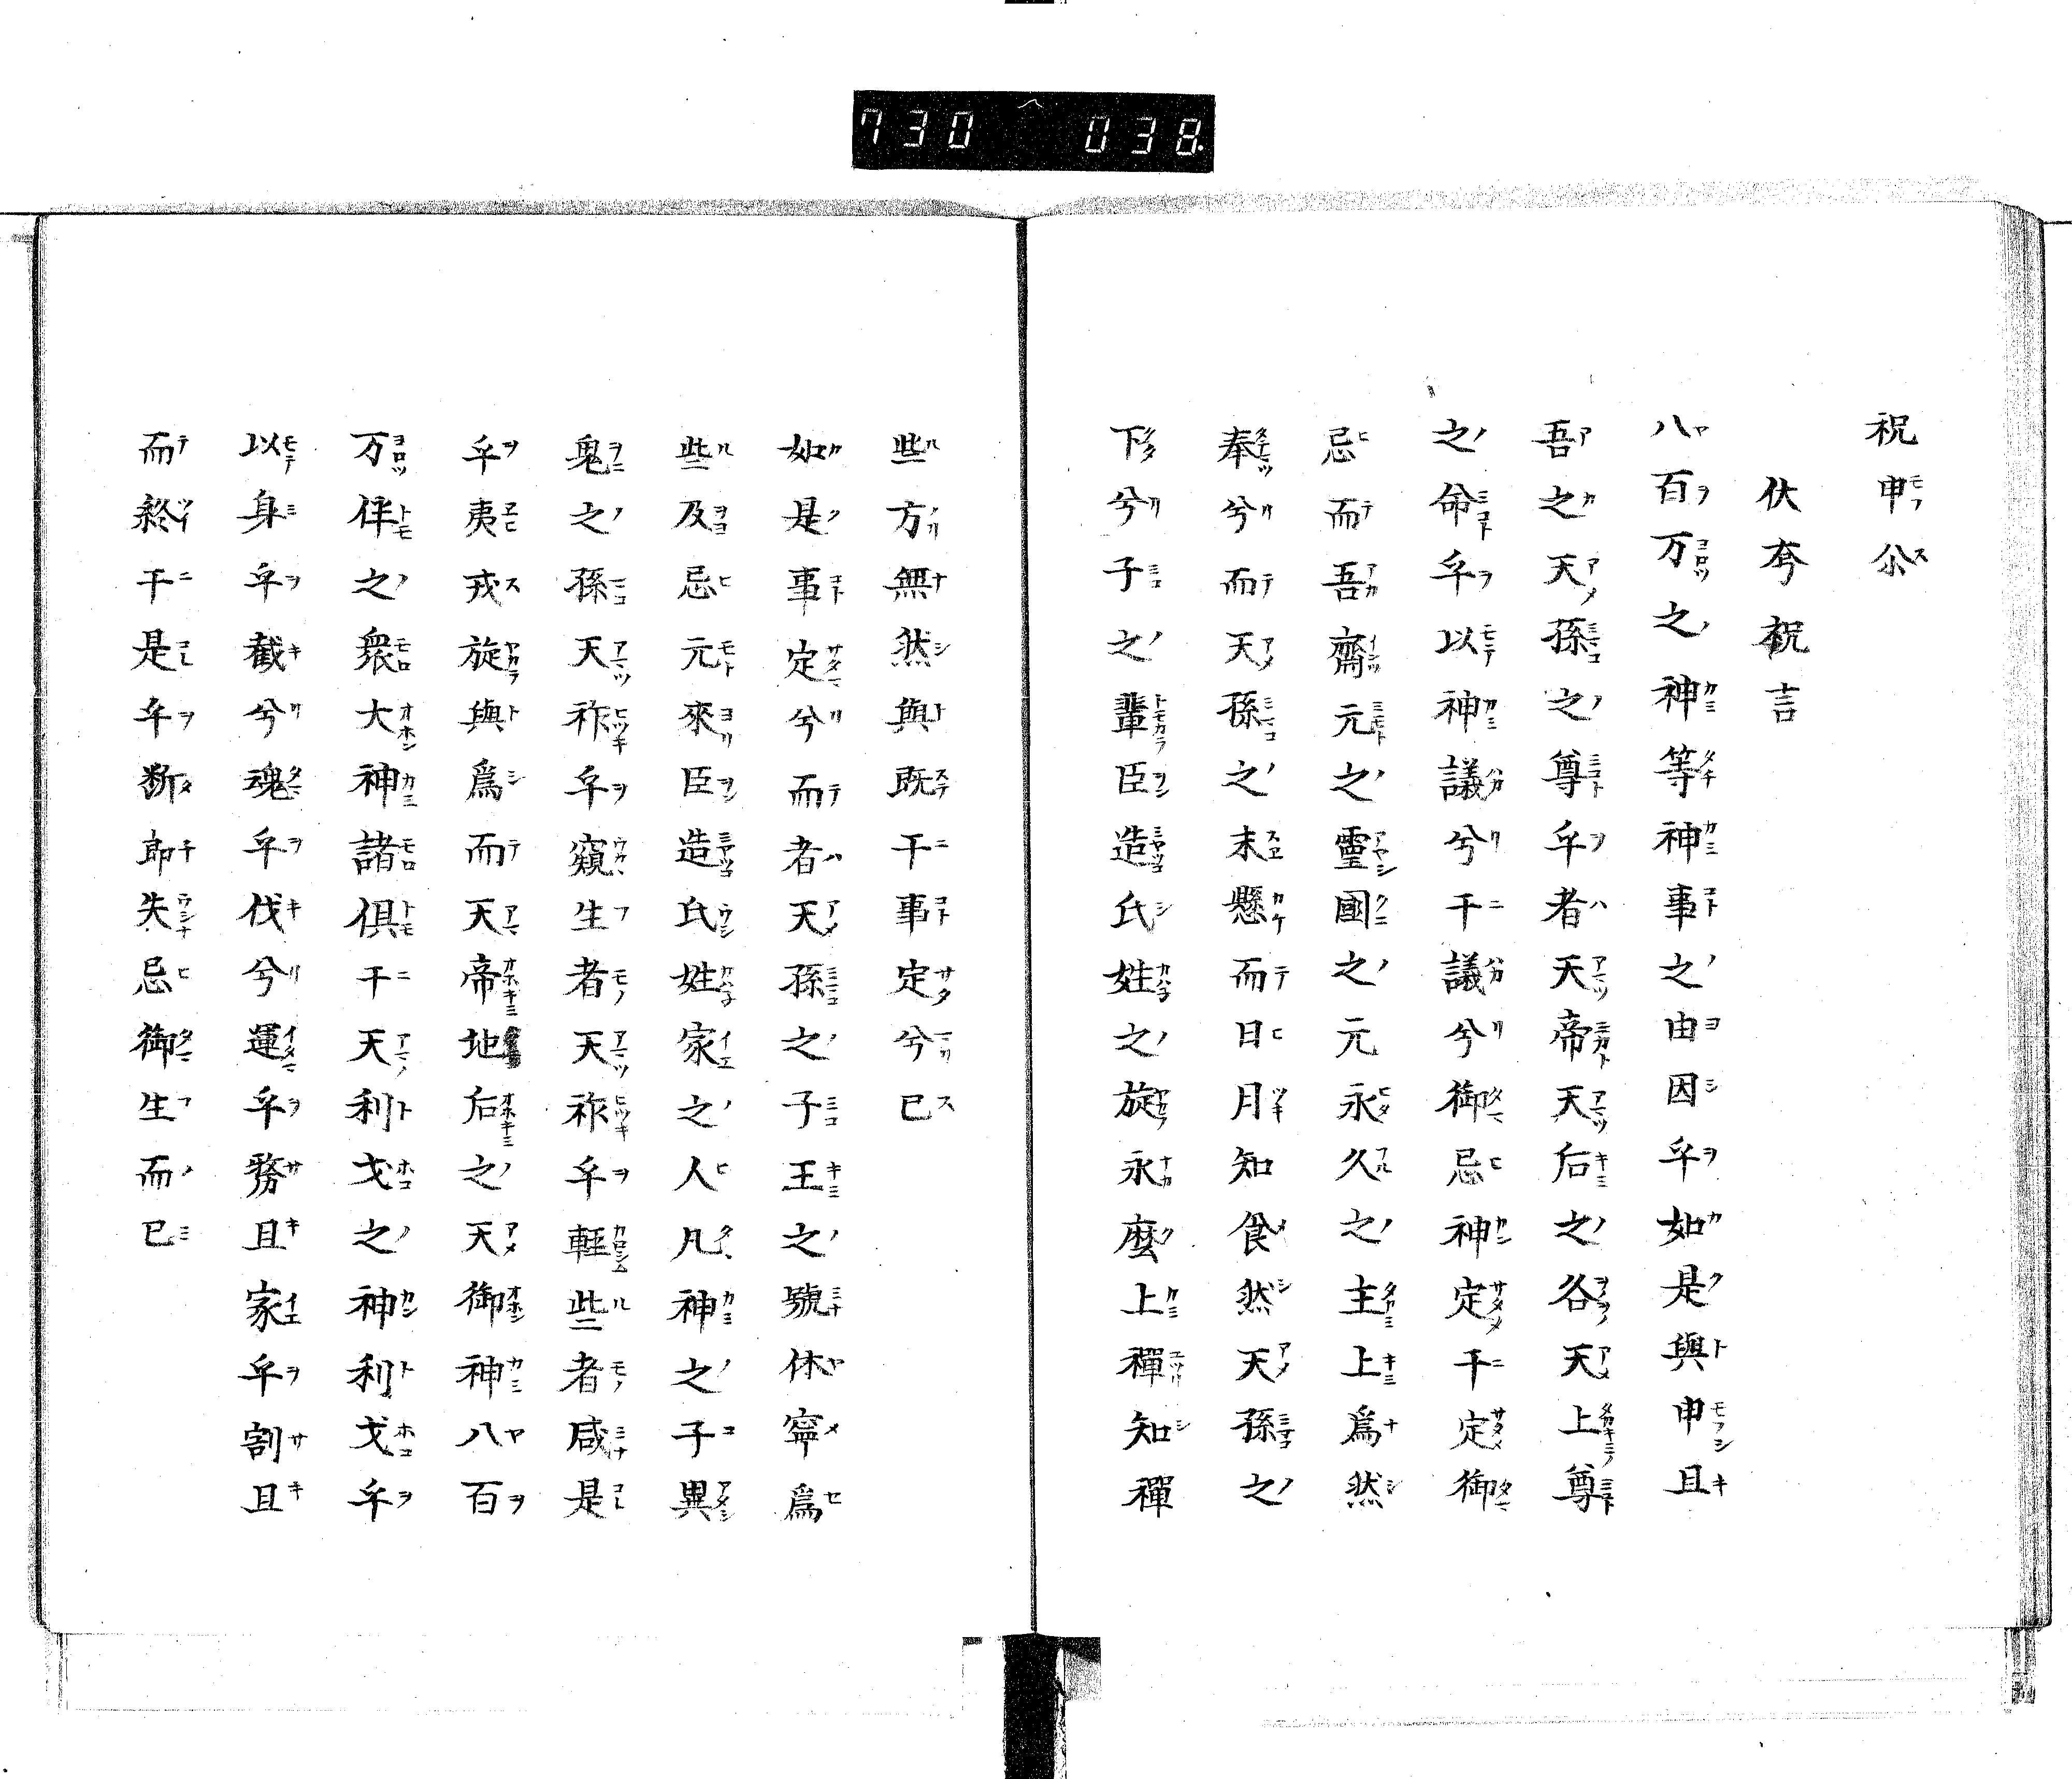 730 038
祝申尒
伏夸祝言
八百万之神等神事之由因乎如是與申且
吾之天孫之尊乎者天帝天后之各天上尊
之命乎以神議兮于議兮御忌神定于定御
忌而吾齋元之靈國之元永久之主上爲然
奉兮而天孫之末懸而日月知食然天孫之
下兮子之輩臣造氏姓之旋永麼上禪知禪
些方無然與既于事定兮已
如是事定兮而者天孫之子王之號休寧爲
些及忌元來臣造氏姓家之人凡神之子異
鬼之孫天祚乎窺生者天祚乎輕些者咸是
乎夷戎旋與爲而天帝地后之天御神八百
万伴之衆大神諸俱于天利戈之神利戈乎
以身乎截兮魂乎伐兮運乎務且家乎割且
而終于是乎斷郎失忌御生而已